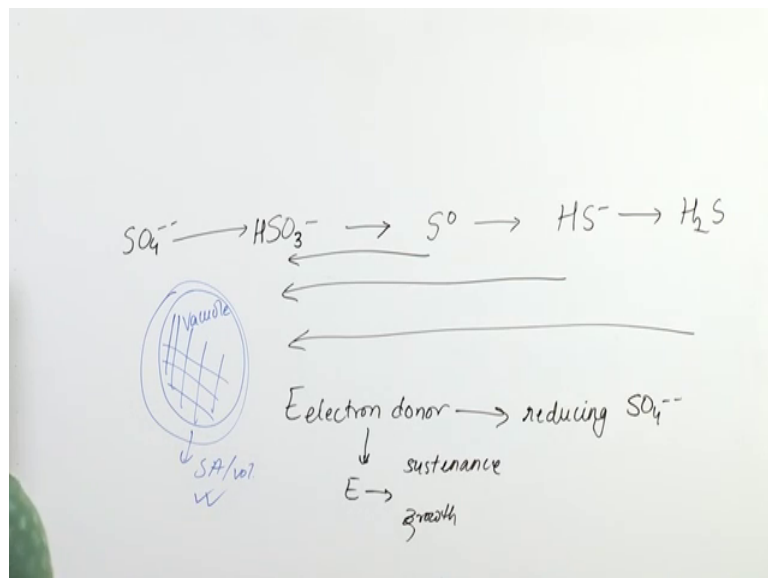 SO₄⁻⁻ → HSO₃⁻ → S⁰ → HS⁻ → H₂S
Vacuole
Eelectron donor → reducing SO₄⁻⁻
sustenance
SA/vol.
E →
growth